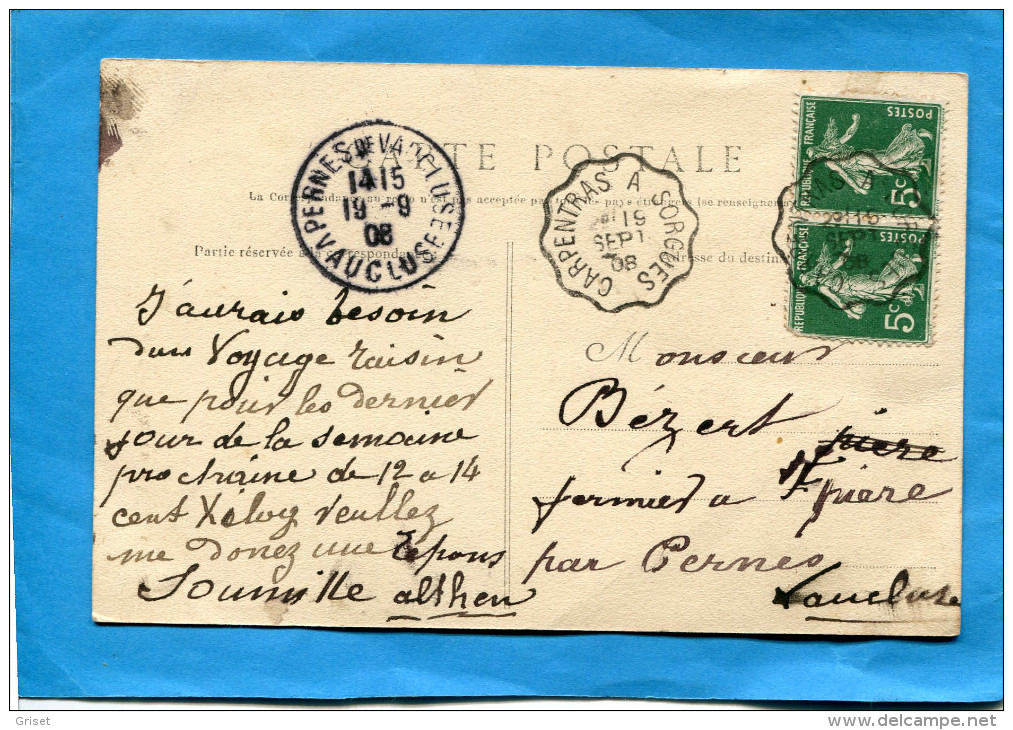 CARTE POSTALE
La Correspondance au recto n'est pas acceptée par tous les pays étrangers (se renseigner
Partie réservée à la correspondance
adresse du destin
PERNES DE VAUCLUSE
14 15
19 -9
08
VAUCLUSE
CARPENTRAS A SORGUES
19
SEPT
08
POSTES
REPUBLIQUE FRANÇAISE
5c
POSTES
REPUBLIQUE FRANÇAISE
5c
J'aurais besoin
dun Voyage raisin
que pour les dernier
jour de la semaine
prochaine de 12 a 14
cent Kilog Veullez
me donez une repons
Soumille althen
Monsieur
Bézert piere
fermier a St piere
par Pernes
Vaucluse
Griset
www.delcampe.net